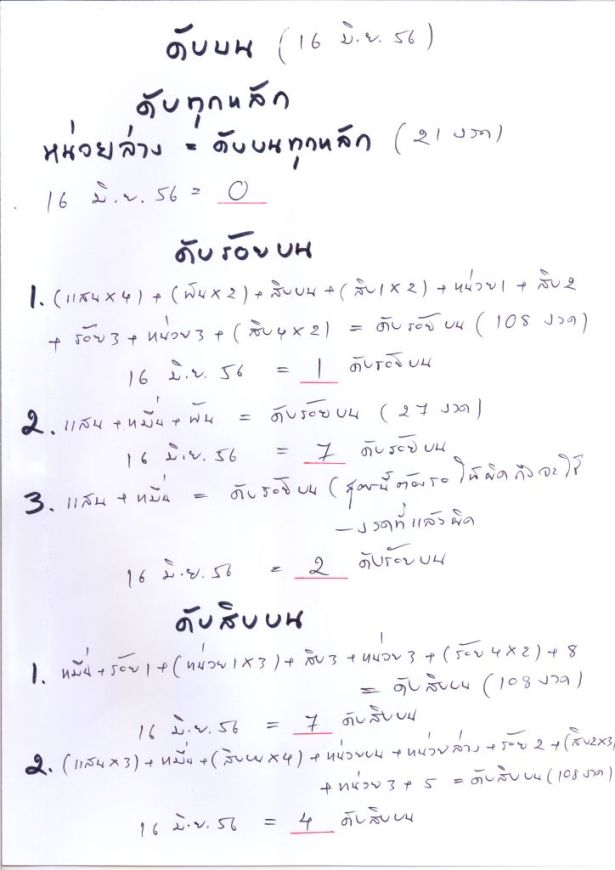 ดับบน (16 มิ.ย. 56)
ดับทุกหลัก
หน่วยล่าง = ดับบนทุกหลัก (21 งวด)
16 มิ.ย. 56 = 0
ดับร้อยบน
1. (แสน×4) + (พัน×2) + สิบบน + (สิบ1×2) + หน่วย1 + สิบ2
+ ร้อย3 + หน่วย3 + (สิบ4×2) = ดับร้อยบน (108 งวด)
16 มิ.ย. 56 = 1 ดับร้อยบน
2. แสน + หมื่น + พัน = ดับร้อยบน (27 งวด)
16 มิ.ย. 56 = 7 ดับร้อยบน
3. แสน + หมื่น = ดับร้อยบน (สูตรนี้ต้องรอให้ผิดถึงจะใช้
- งวดที่แล้วผิด
16 มิ.ย. 56 = 2 ดับร้อยบน
ดับสิบบน
1. หมื่น + ร้อย1 + (หน่วย1×3) + สิบ3 + หน่วย3 + (ร้อย4×2) + 8
= ดับสิบบน (108 งวด)
16 มิ.ย. 56 = 7 ดับสิบบน
2. (แสน×3) + หมื่น + (สิบบน×4) + หน่วยบน + หน่วยล่าง + ร้อย2 + (สิบ2×3)
+ หน่วย3 + 5 = ดับสิบบน (108 งวด)
16 มิ.ย. 56 = 4 ดับสิบบน